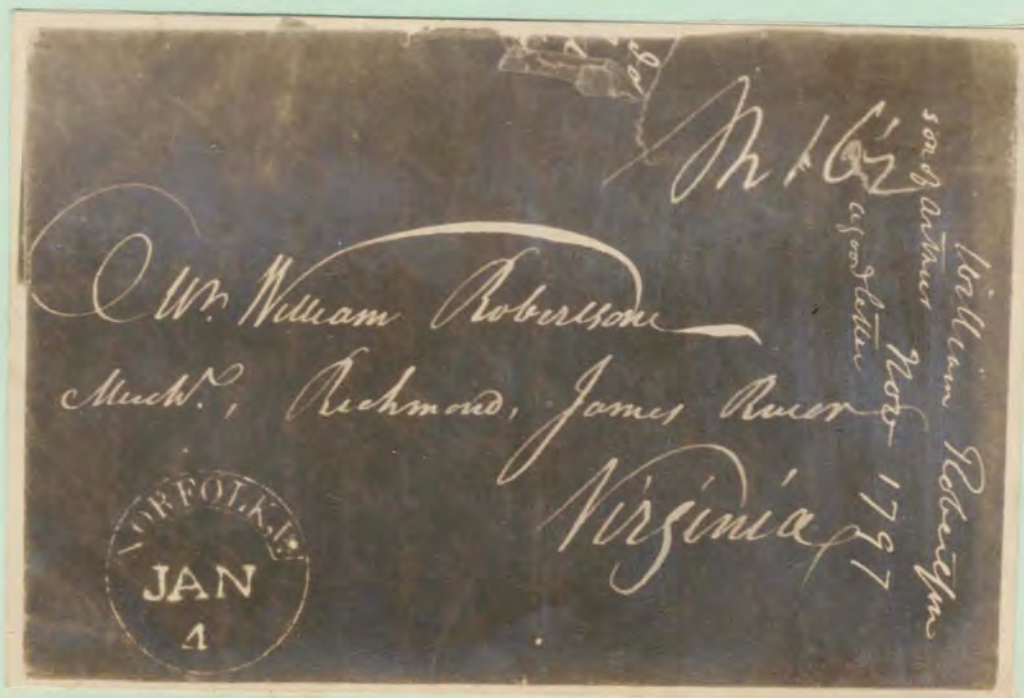 Mr. William Robertson
Mercht., Richmond, James River
Virginia
NORFOLK. Va
JAN
4
William Robertson
son of Arthur Nov 1797
a good letter